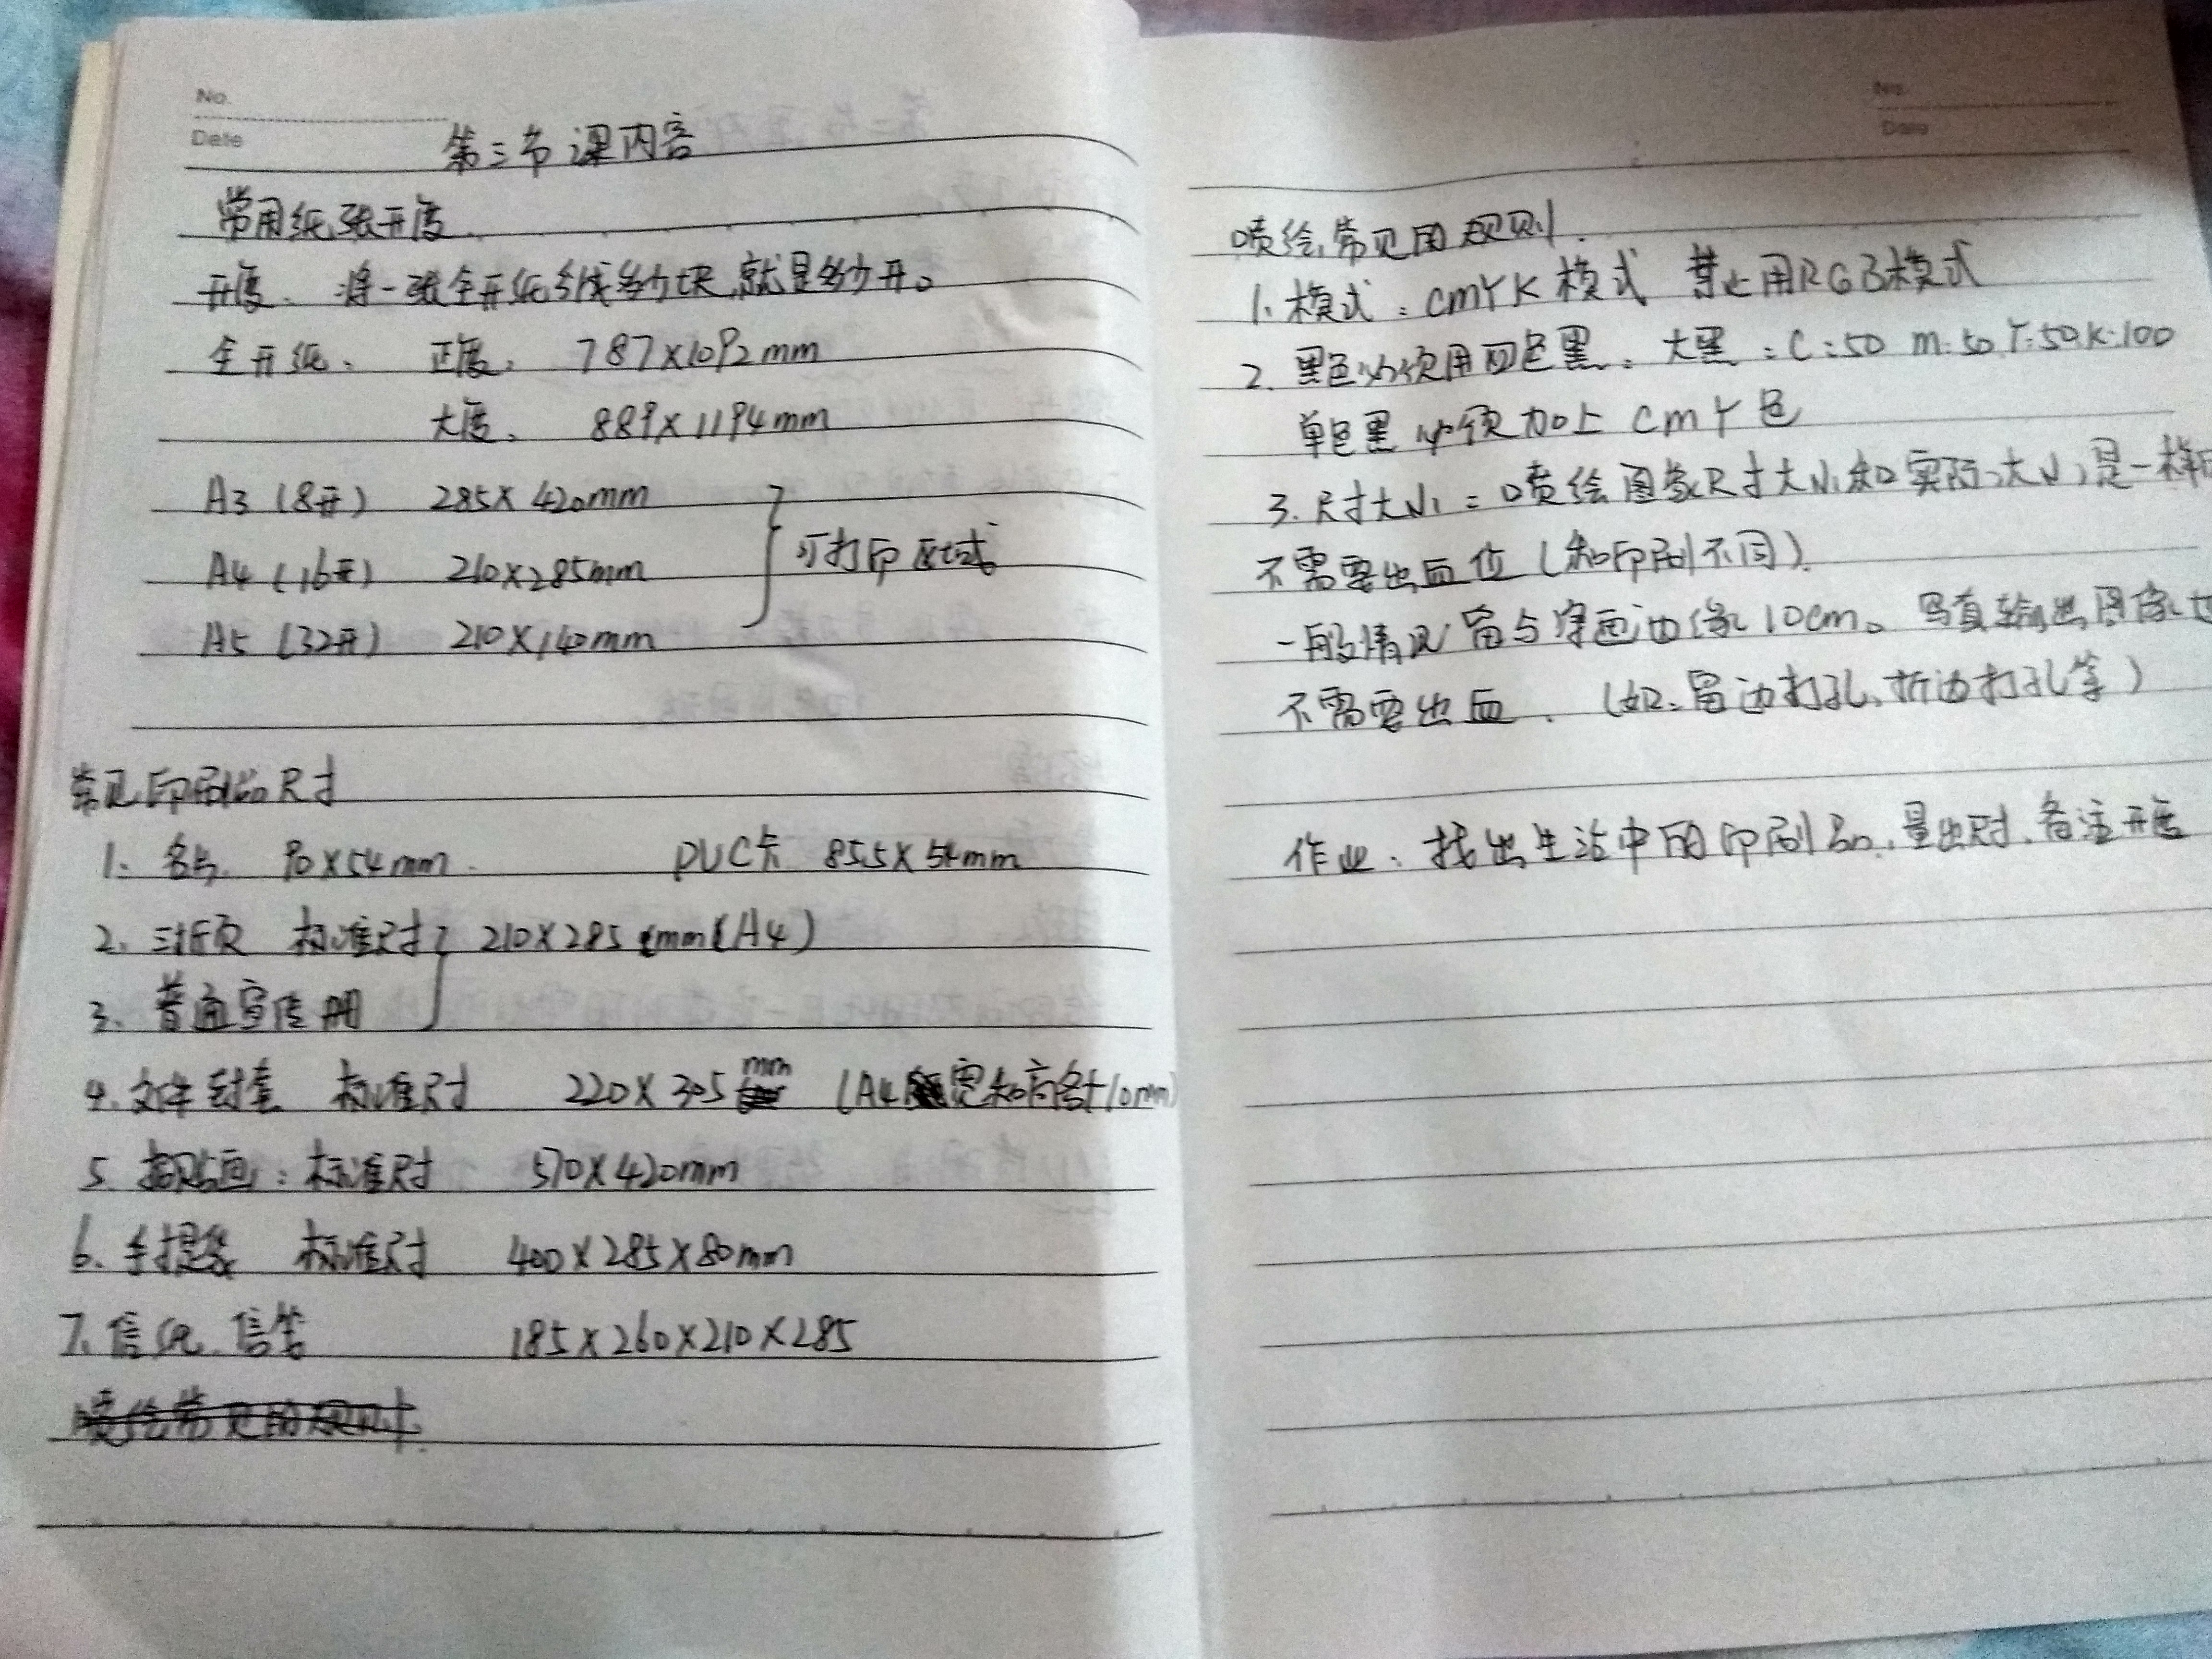 No.
Date
第三节课内容
常用纸张开度
开度、将一张全开纸分成多少块,就是多少开。
全开纸、 正度、 787×1092mm
大度、 889×1194mm
A3 (8开) 285×420mm
A4 (16开) 210×285mm
A5 (32开) 210×140mm
可打印区域
常见印刷品尺寸
1. 名片 90×54mm PVC卡 85.5×54mm
2. 三折页 标准尺寸 210×285 mm (A4)
3. 普通宣传册
4. 文件封套 标准尺寸 220×305 mm (A4宽和高各+10mm)
5. 招贴画:标准尺寸 570×420mm
6. 手提袋 标准尺寸 400×285×80mm
7. 信纸、信笺 185×260×210×285
喷绘常见的规则
No.
Date
喷绘常见用规则.
1. 模式:CMYK模式 禁止用RGB模式
2. 黑色必须用四色黑。大黑:C:50 M:50 Y:50 K:100
单色黑必须加上CMY色
3. 尺寸大小:喷绘图象尺寸大小和实际大小是一样
不需要出血位(和印刷不同).
一般情况留与穿画边缘10cm。写真输出图像也
不需要出血.(如:留边打孔、折边打孔等)
作业:找出生活中的印刷品,量出尺寸,备注开度